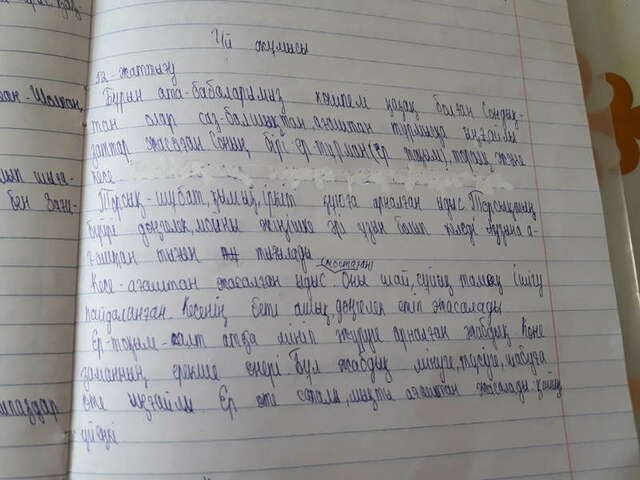 Үй жұмысы
12-жаттығу
Бұрын ата-бабаларымыз көшпелі қазақ болған Сондық-
тан олар саз-балшықтан, ағаштан тұрмысқа ыңғайлы
заттар жасаған Соның бірі ер-тұрман(ер тоқым), торсық және
кесе
Торсық-шұбат, қымыз, іркіт құюға арналған ыдыс. Торсықтың
бүйірі дөңгелек, мойны жіңішке әрі ұзын болып келеді Аузына а-
ғаштан тығын тығылады
(костаған)
Кесе-ағаштан жасалған ыдыс. Оны шай, сұйық тамақ ішуге
пайдаланған. Кесенің беті ашық, дөңгелек етіп жасалады
Ер-тоқым-салт атқа мініп жүруге арналған жабдық Көне
заманның ерекше өнері Бұл жабдық мінуге, түсуге, шабуға
өте ыңғайлы. Ер өте сапалы, мықты ағаштан жасалады: қайың
үйеңкі.
зан-Шолпан,
бен Зәңгі-
мпаздар